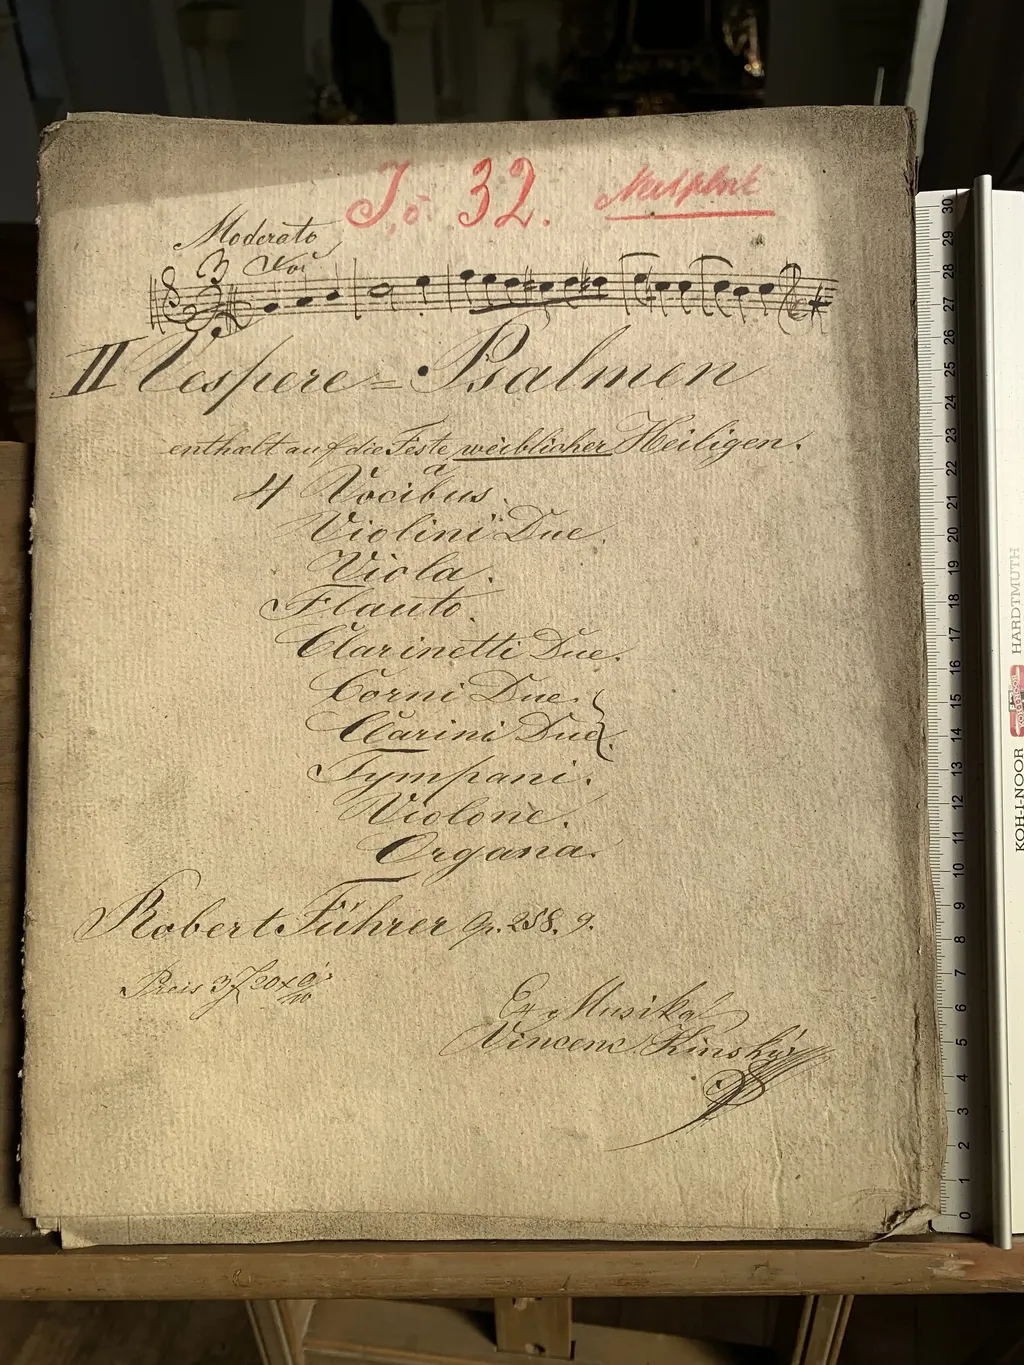 J. ō. 32.
Moderato
3
II Vespere = Psalmen
enthælt auf die Feste weiblicher Heiligen.
à
4 Vocibus.
Violini Due.
Viola.
Flauto.
Clarinetti Due.
Corni Due.
Clarini Due.
Tympani.
Violone.
Organa.
Robert Führer Op. 258. 9.
Preis 3
Ex Musika
Vincenc Kinský
30
29
28
27
26
25
24
23
22
21
20
19
18
17
16
15
14
13
12
11
10
9
8
7
6
5
4
3
2
1
0
KOH-I-NOOR HARDTMUTH